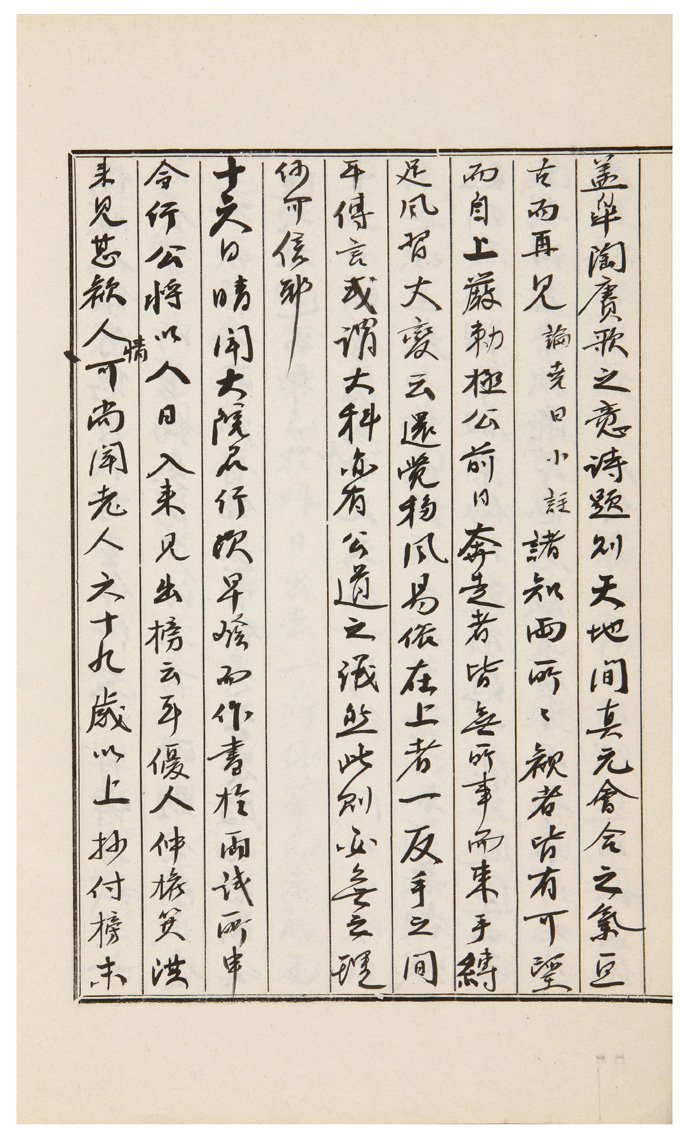 盖皐陶賡歌之意詩題則天地間真元會合之氣亘
古而再見論堯曰小註諸知兩所〻観者皆有可望
而自上嚴勅極公前日奔走者皆無所事而束手縛
足風習大變云還覺移風易俗在上者一反手之間
耳傳言或謂大科亦有公道之議然此則必無之理
何可信耶
十六日晴聞大院君行次早發而作書於兩試所申
令行公將以人日入来見出榜云耳優人仲機箕洪
来見甚款人情可尚聞老人六十九歲以上抄付榜末